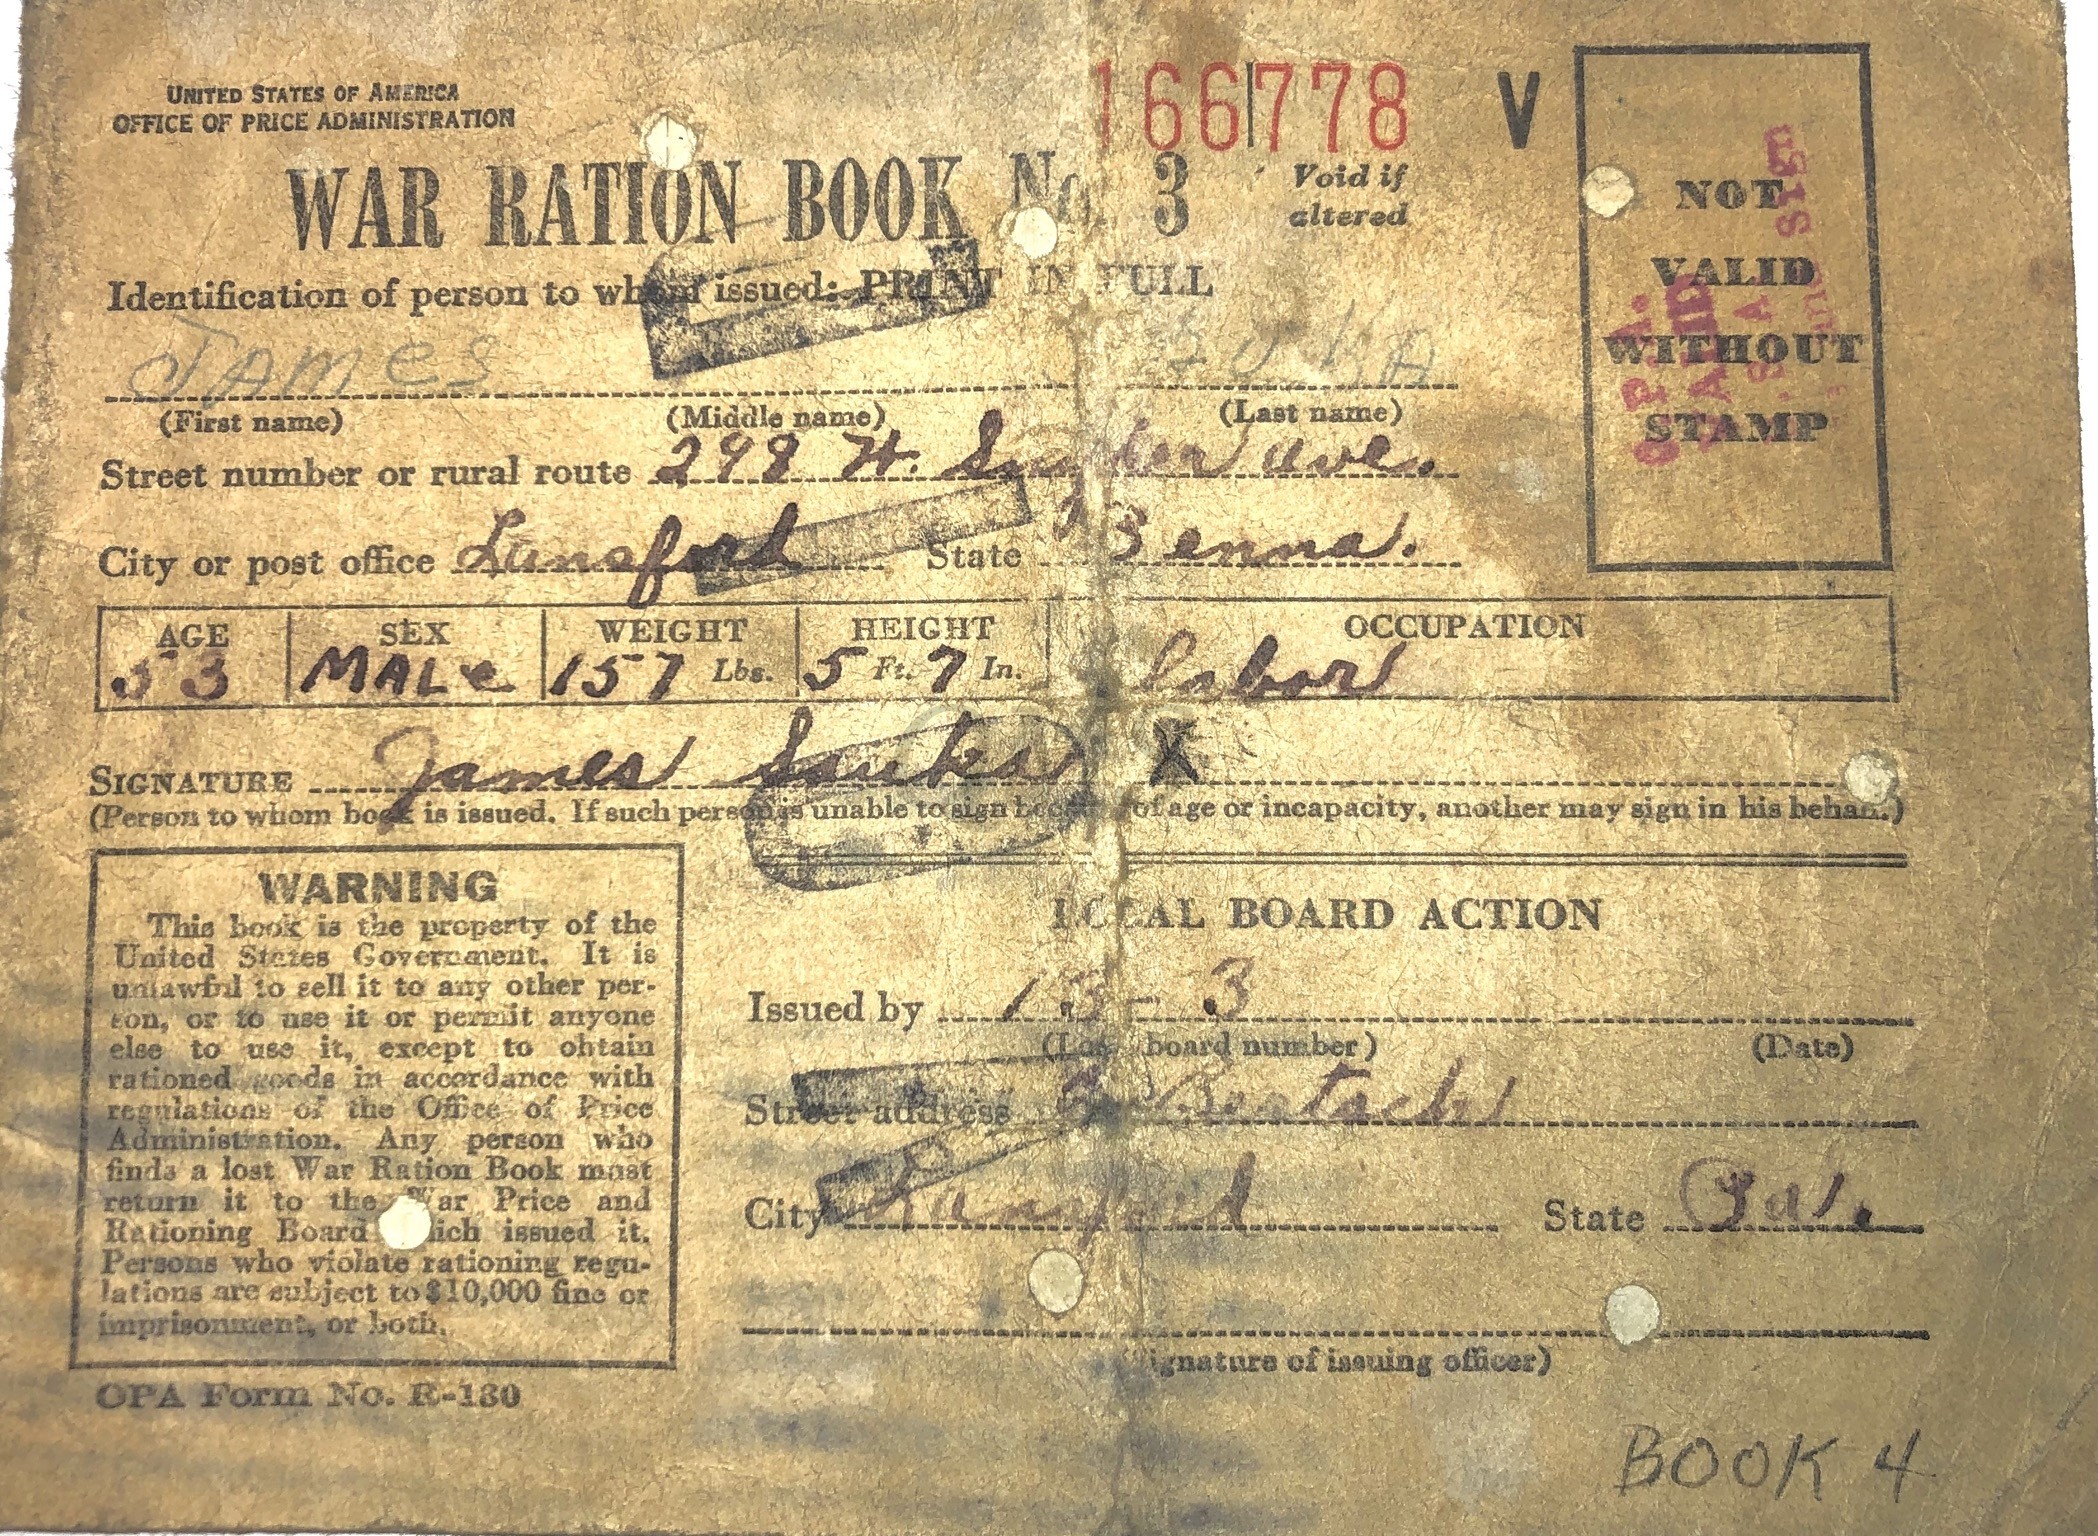 UNITED STATES OF AMERICA
OFFICE OF PRICE ADMINISTRATION
166778 V
WAR RATION BOOK No. 3
Void if
altered
Identification of person to whom issued: PRINT IN FULL
James
(First name) (Middle name) (Last name)
Street number or rural route 298 W. Snyder ave.
City or post office Lansford State Penna.
AGE SEX WEIGHT HEIGHT OCCUPATION
53 MALe 157 Lbs. 5 Ft. 7 In. labor
SIGNATURE James X
(Person to whom book is issued. If such person is unable to sign because of age or incapacity, another may sign in his behalf.)
NOT
VALID
WITHOUT
STAMP
WARNING
This book is the property of the
United States Government. It is
unlawful to sell it to any other per-
son, or to use it or permit anyone
else to use it, except to obtain
rationed goods in accordance with
regulations of the Office of Price
Administration. Any person who
finds a lost War Ration Book must
return it to the War Price and
Rationing Board which issued it.
Persons who violate rationing regu-
lations are subject to $10,000 fine or
imprisonment, or both.
OPA Form No. R-130
LOCAL BOARD ACTION
Issued by 13-3
(Local board number) (Date)
Street address
City Lansford State Pa.
(Signature of issuing officer)
BOOK 4